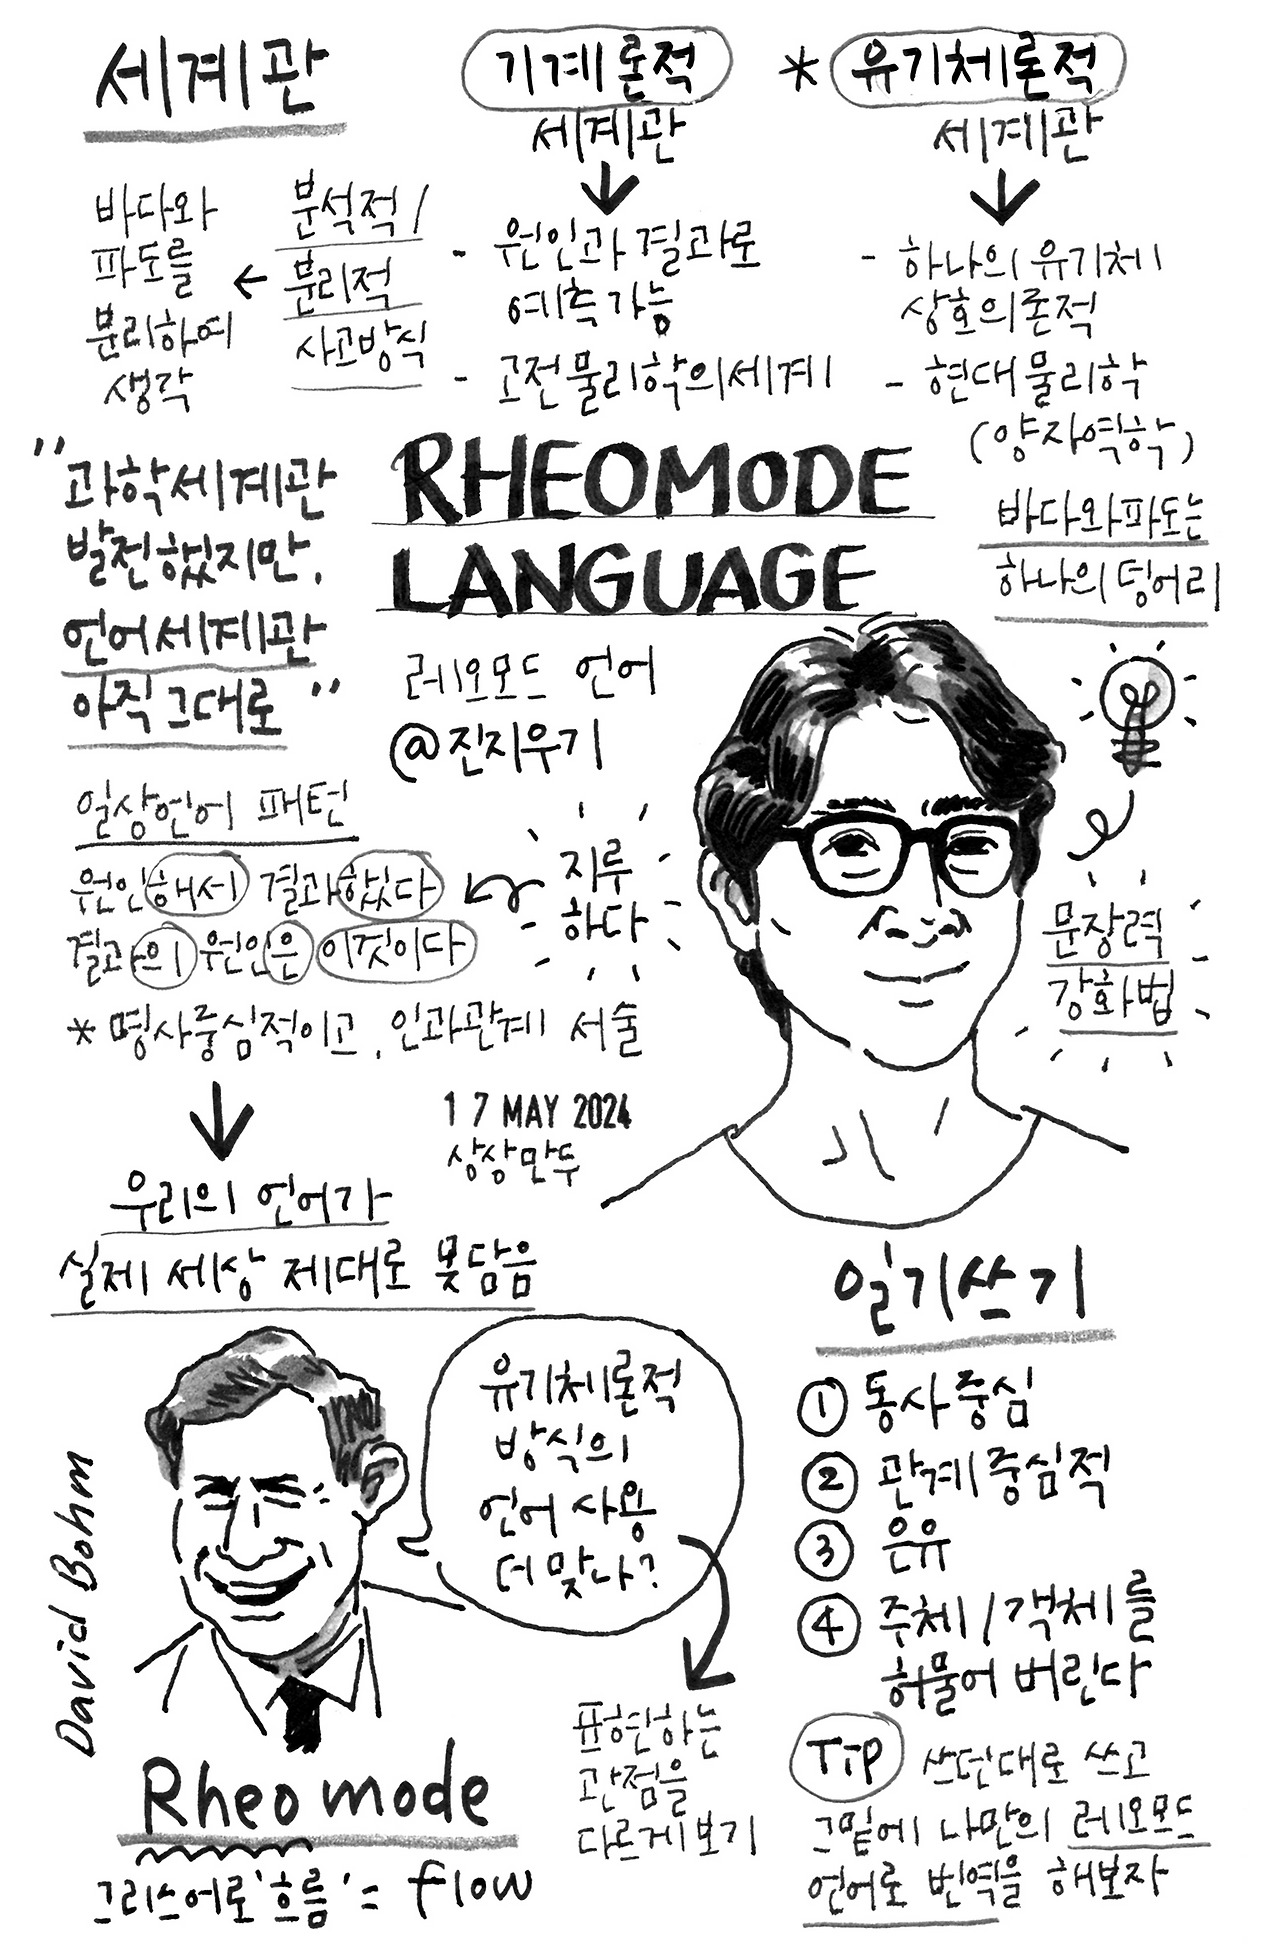 세계관
기계론적
세계관
* 유기체론적
세계관
바다와
파도를
분리하여
생각
분석적/
분리적
사고방식
- 원인과 결과로
예측 가능
- 고전물리학의 세계
- 하나의 유기체
상호의론적
- 현대물리학
(양자역학)
바다와 파도는
하나의 덩어리
"과학세계관
발전했지만,
언어세계관
아직 그대로"
RHEOMODE
LANGUAGE
레오모드 언어
@진지우기
일상언어 패턴
원인해서 결과했다
결과의 원인은 이것이다
지루
하다
* 명사중심적이고, 인과관계 서술
문장력
강화법
17 MAY 2024
상상만두
우리의 언어가
실제 세상 제대로 못담음
유기체론적
방식의
언어 사용
더 맞나?
David Bohm
Rheo mode
그리스어로 '흐름' = flow
표현하는
관점을
다르게 보기
일기쓰기
① 동사 중심
② 관계중심적
③ 은유
④ 주체/객체를
허물어 버린다
TiP 쓰던대로 쓰고
그밑에 나만의 레오모드
언어로 번역을 해보자